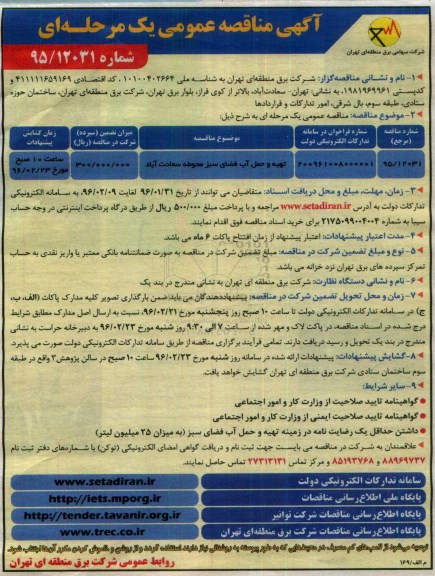 آگهی مناقصه عمومی یک مرحله‌ای
شماره ۹۵/۱۲۰۳۱
شرکت سهامی برق منطقه‌ای تهران
۱- نام و نشانی مناقصه‌گزار: شرکت برق منطقه‌ای تهران به شناسه ملی ۱۰۱۰۰۴۰۲۶۶۴، کد اقتصادی ۴۱۱۱۱۱۶۵۹۱۶۹ و
کدپستی ۱۹۸۱۹۶۹۹۶۱، به نشانی: تهران- سعادت‌آباد، بالاتر از کوی فراز، بلوار برق تهران، شرکت برق منطقه‌ای تهران، ساختمان حوزه
ستادی، طبقه سوم، بال شرقی، امور تدارکات و قراردادها
۲- موضوع مناقصه: مناقصه عمومی یک مرحله ای به شرح ذیل:
شماره مناقصه (مرجع)
شماره فراخوان در سامانه تدارکات الکترونیکی دولت
موضوع مناقصه
میزان تضمین (سپرده) شرکت در مناقصه (ریال)
زمان گشایش پیشنهادات
۹۵/۱۲۰۳۱
۲۰۰۹۶۱۰۰۸۰۰۰۰۰۱
تهیه و حمل آب فضای سبز محوطه سعادت آباد
۳۰۰/۰۰۰/۰۰۰
ساعت ۱۰ صبح
مورخ ۹۶/۰۲/۲۳
۳- زمان، مهلت، مبلغ و محل دریافت اسناد: متقاضیان می توانند از تاریخ ۹۶/۰۱/۳۱ لغایت ۹۶/۰۲/۰۹، به سامانه الکترونیکی
تدارکات دولت به آدرس www.setadiran.ir مراجعه و با پرداخت مبلغ ۵۰۰/۰۰۰ ریال از طریق درگاه پرداخت اینترنتی در وجه حساب
سیبا به شماره ۲۱۷۵۰۹۹۰۰۴۰۰۴ برای خرید اسناد مناقصه فوق اقدام نمایند.
۴- مدت اعتبار پیشنهادات: اعتبار پیشنهاد از زمان افتتاح پاکات ۶ ماه می باشد.
۵- نوع و مبلغ تضمین شرکت در مناقصه: مبلغ تضمین شرکت در مناقصه به صورت ضمانتنامه بانکی معتبر یا واریز نقدی به حساب
تمرکز سپرده های برق تهران نزد خزانه می باشد.
۶- نام و نشانی دستگاه نظارت: شرکت برق منطقه ای تهران به نشانی مندرج در بند یک
۷- زمان و محل تحویل تضمین شرکت در مناقصه: پیشنهاددهندگان می باید ضمن بارگذاری تصویر کلیه مدارک پاکات (الف، ب،
ج) در سامانه تدارکات الکترونیکی دولت تا ساعت ۱۰ صبح روز پنجشنبه مورخ ۹۶/۰۲/۲۱، نسبت به ارسال اصل مدارک مطابق شرایط
درج شده در اسناد مناقصه، در پاکت لاک و مهر شده از ساعت ۷ الی ۹:۳۰ روز شنبه مورخ ۹۶/۰۲/۲۳ به دبیرخانه حراست به نشانی
مندرج در بند یک تحویل و رسید دریافت دارند. تمامی فرآیند برگزاری مناقصه از طریق سامانه تدارکات الکترونیکی دولت صورت می پذیرد.
۸- گشایش پیشنهادات: پیشنهادات ارائه شده در سامانه روز شنبه مورخ ۹۶/۰۲/۲۳ ساعت ۱۰ صبح در سالن پژوهش۳ واقع در طبقه
سوم ساختمان ستادی شرکت برق منطقه ای تهران گشایش خواهد یافت.
۹- سایر شرایط:
● گواهینامه تایید صلاحیت از وزارت کار و امور اجتماعی
● گواهینامه تایید صلاحیت ایمنی از وزارت کار و امور اجتماعی
● داشتن حداقل یک رضایت نامه در زمینه تهیه و حمل آب فضای سبز (به میزان ۲۵ میلیون لیتر)
علاقمندان به شرکت در مناقصه می بایست جهت ثبت نام و دریافت گواهی امضای الکترونیکی (توکن) با شماره‌های دفتر ثبت نام
۸۸۹۶۹۷۳۷ و ۸۵۱۹۳۷۶۸ و مرکز تماس ۲۷۳۱۳۱۳۱ تماس حاصل نمایند.
سامانه تدارکات الکترونیکی دولت www.setadiran.ir
پایگاه ملی اطلاع‌رسانی مناقصات http://iets.mporg.ir
پایگاه اطلاع‌رسانی مناقصات شرکت توانیر http://tender.tavanir.org.ir
پایگاه اطلاع‌رسانی مناقصات شرکت برق منطقه‌ای تهران www.trec.co.ir
روابط عمومی شرکت برق منطقه ای تهران
م الف/۱۶۹